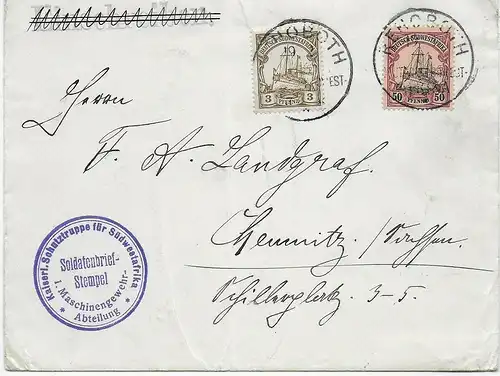 REHOBOTH
19
DEUTSCH-SÜDWESTAFRIKA
3 3
PFENNIG
REHOBOTH
DEUTSCH-SÜDWESTAFRIKA
50 50
PFENNIG
Herrn
F. A. Landgraf.
Chemnitz. /Sachsen.
Schillerplatz 3-5.
Kaiserl. Schutztruppe für Südwestafrika
Soldatenbrief-
Stempel
1. Maschinengewehr-
* Abteilung *